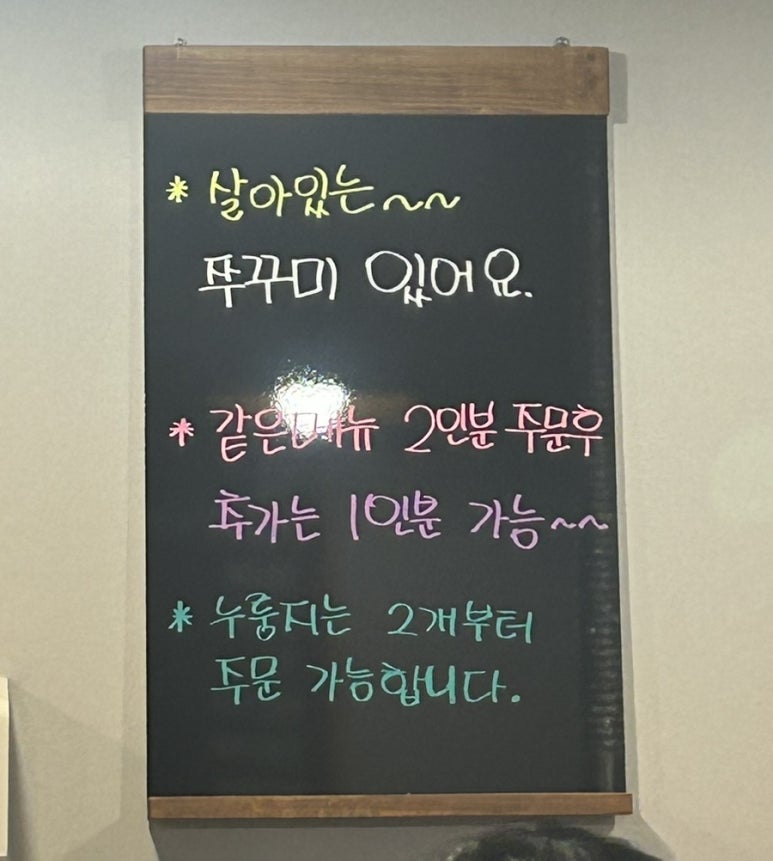 * 살아있는~~
쭈꾸미 있어요.
* 같은메뉴 2인분 주문후
추가는 1인분 가능~~
* 누룽지는 2개부터
주문 가능합니다.